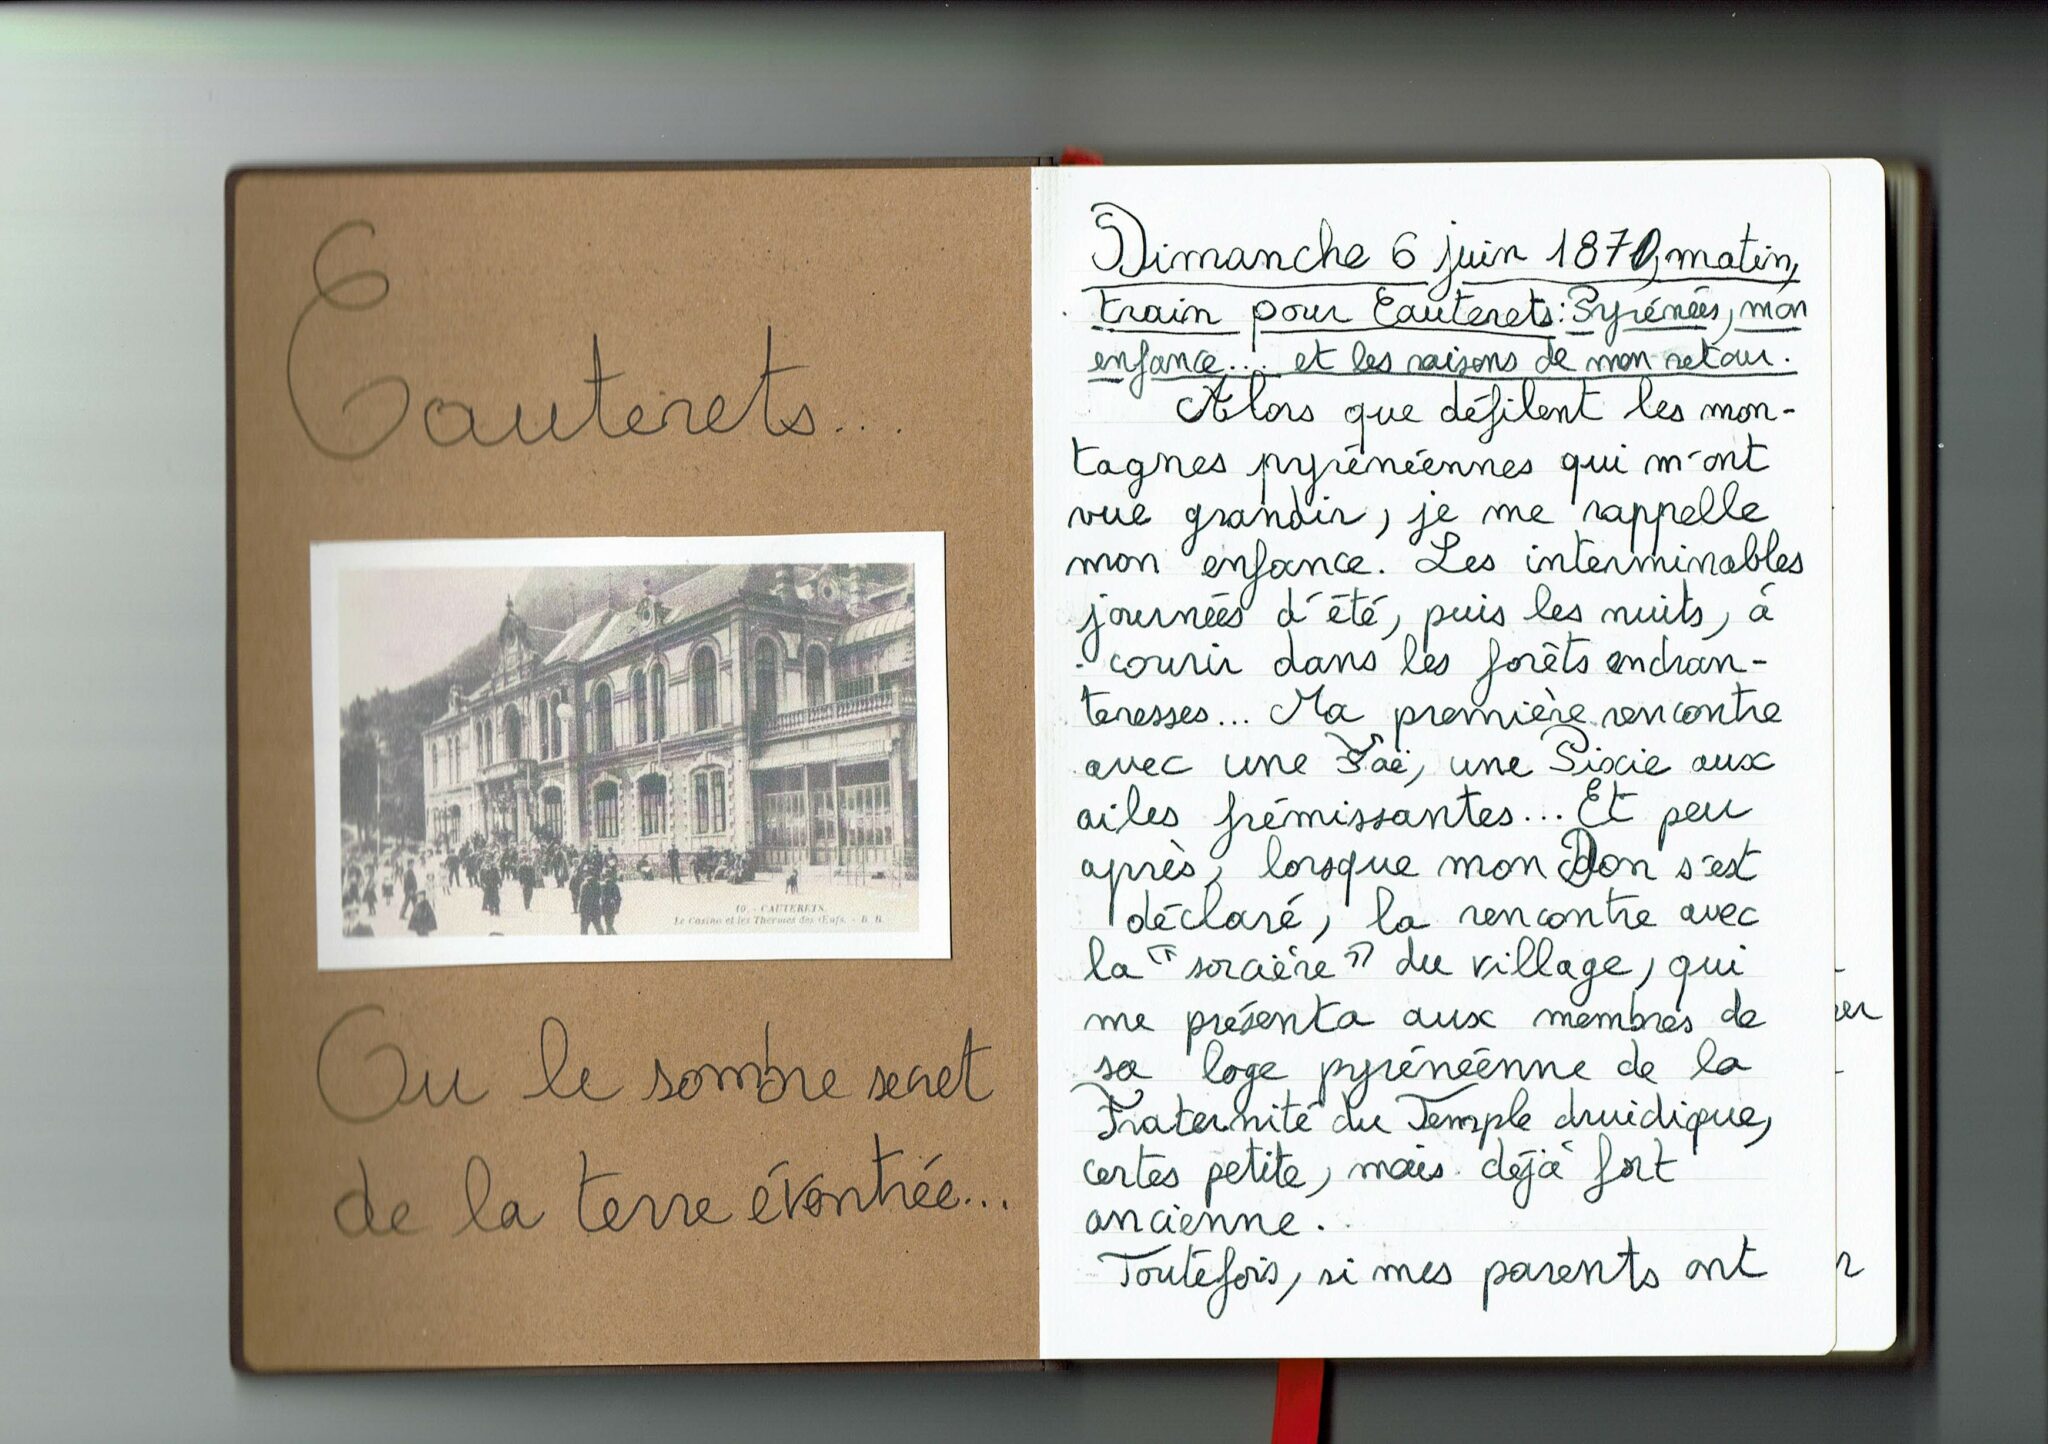 Cauterets...
10. - CAUTERETS.
Le Casino et les Thermes des Œufs. - B. R.
Ou le sombre secret
de la terre éventrée...
Dimanche 6 juin 1870, matin,
train pour Cauterets : Pyrénées, mon
enfance... et les raisons de mon retour.
Alors que défilent les mon-
tagnes pyrénéennes qui m'ont
vue grandir, je me rappelle
mon enfance. Les interminables
journées d'été, puis les nuits, à
courir dans les forêts enchan-
teresses... Ma première rencontre
avec une Faë, une Pixie aux
ailes frémissantes... Et peu
après, lorsque mon Don s'est
déclaré, la rencontre avec
la "sorcière" du village, qui
me présenta aux membres de
sa loge pyrénéenne de la
Fraternité du Temple druidique,
certes petite, mais déjà fort
ancienne.
Toutefois, si mes parents ont
er
r